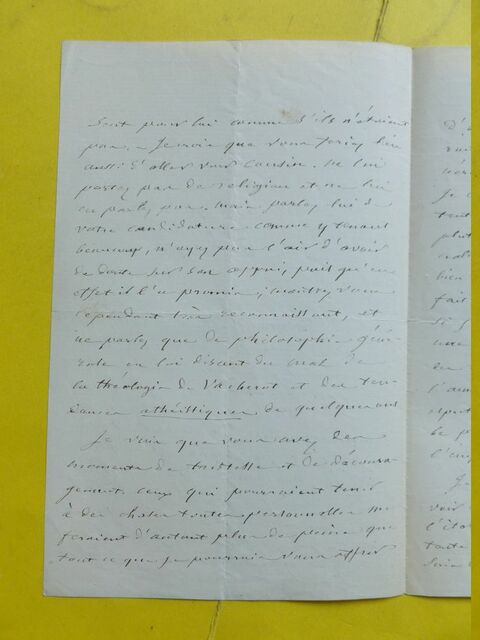 sont pour lui comme s'ils n'étaient
pas. Je crois que vous feriez bien
aussi d'aller voir Cousin. Ne lui
parlez pas de religion et ne lui
en parlez pas. Mais parlez lui de
votre candidature comme y tenant
beaucoup, n'ayez pas l'air d'avoir
de doute sur son appui, puisqu'en
effet il l'a promis, montrez vous
cependant très reconnaissant, et
ne parlez que de philosophie géné-
rale en lui disant du mal de
la théologie de Vacherot et des ten-
dances athéistiques de quelques uns
Je vois que vous avez des
moments de tristesse et de découra-
gement. Ceux qui pourraient tenir
à des choses toutes personnelles me
feraient d'autant plus de peine que
tout ce que je pourrais vous offrir
D'a
rai
Je c
tout
plut
mal
bien
fait
Si j
une
en
l'au
esprit
voir
l'éto
toute
Serie